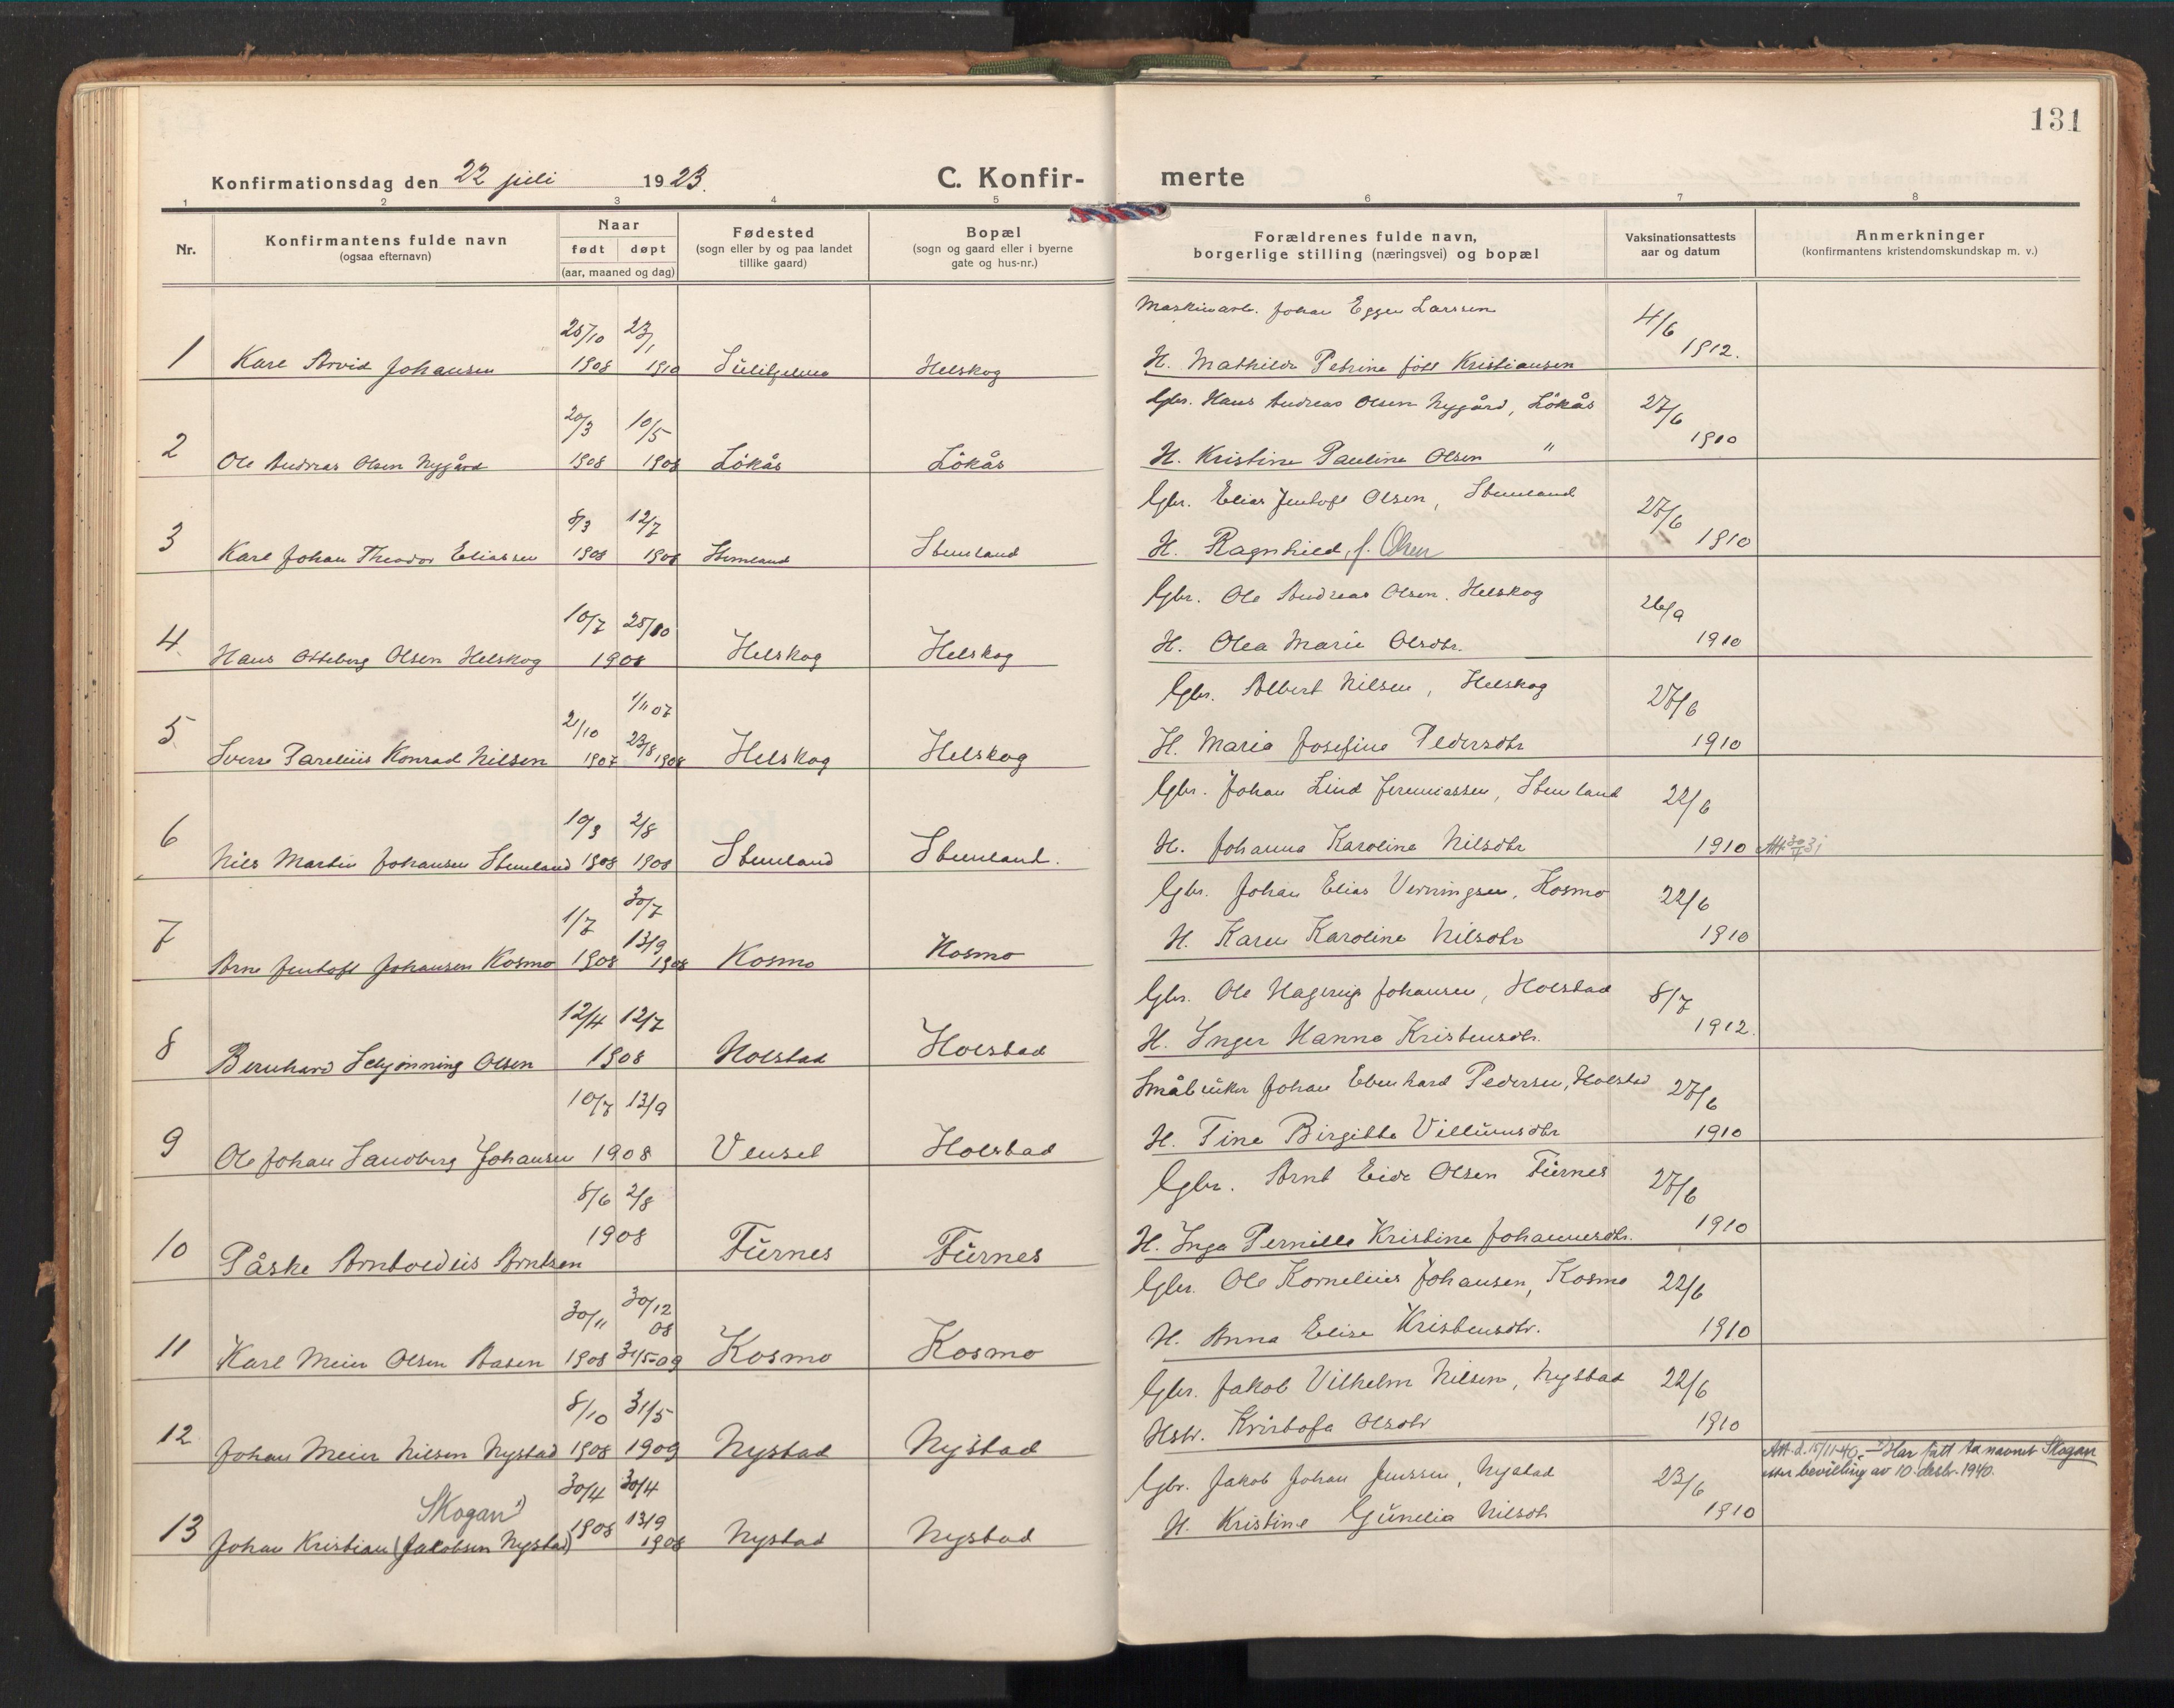 131
Konfirmationsdag den 22 juli 1923. C. Konfir- merte
1 2 3 4 5 6 7 8
Nr.
Konfirmantens fulde navn
(ogsaa efternavn)
Naar
født døpt
(aar, maaned og dag)
Fødested
(sogn eller by og paa landet
tillike gaard)
Bopæl
(sogn og gaard eller i byerne
gate og hus-nr.)
Forældrenes fulde navn,
borgerlige stilling (næringsvei) og bopæl
Vaksinationsattests
aar og datum
Anmerkninger
(konfirmantens kristendomskundskap m. v.)
25/10 23/1 Maskinarb. Johan Eggen Larssen 4/6
1 Karl Arvid Johansen 1908 1910 Sulitjelma Helskog H. Mathilde Petrine født Kristiansen 1912.
20/3 10/5 Gbr. Hans Andreas Olsen Nygård, Lökås 27/6
2 Ole Andreas Olsen Nygård 1908 1908 Lökås Lökås H. Kristine Pauline Olsen " 1910
8/3 12/7 Gbr. Elias Jentoft Olsen, Stemland 27/6
3 Karl Johan Theodor Eliassen 1908 1908 Stemland Stemland H. Ragnhild, f. Olsen 1910
10/7 25/10 Gbr. Ole Andreas Olsen, Helskog 26/9
4 Hans Otteberg Olsen Helskog 1908 Helskog Helskog H. Olea Marie Olsdtr. 1910
2/10 1/11 07 Gbr. Albert Nilsen, Helskog 27/6
5 Sverre Parelius Konrad Nilsen 1907 23/8 1908 Helskog Helskog H. Maria Josefine Pedersdtr 1910
10/3 2/8 Gbr. Johan Lind Jeremiassen, Stemland 22/6
6 Nils Martin Johansen Stemland 1908 1908 Stemland Stemland. H. Johanna Karoline Nilsdtr 1910 Att 30/4 31
1/7 30/7 Gbr. Johan Elias Verningsen, Kosmo 22/6
7 Arne Jentoft Johansen Kosmo 1908 13/9 1908 Kosmo Kosmo H. Karen Karoline Nilsdtr 1910
12/4 12/7 Gbr. Ole Hagerup Johansen, Holstad 8/7
8 Bernhard Schjönning Olsen 1908 Holstad Holstad H. Inger Hanna Kristensdtr. 1912.
10/7 13/9 Småbruker Johan Ebenhard Pedersen, Holstad 27/6
9 Ole Johan Sandberg Johansen 1908 Vensel Holstad H. Tine Birgitte Villumsdtr 1910
8/6 2/8 Gbr. Arnt Eide Olsen Furnes 27/6
10 Påske Arntoedius Arntsen 1908 Furnes Furnes H. Inga Pernille Kristine Johannesdtr. 1910
30/11 30/12 08 Gbr. Ole Kornelius Johansen, Kosmo 22/6
11 Karl Meier Olsen Aasen 1908 31/5-09 Kosmo Kosmo H. Anna Elise Kristensdtr. 1910
8/10 31/5 Gbr. Jakob Vilhelm Nilsen, Nystad 22/6
12 Johan Meier Nilsen Nystad 1908 1909 Nystad Nystad Hstr. Kristofa Olsdtr 1910
Att. d. 15/11-40. - 1) Har fått ta navnet Skogan
etter bevilling av 10. desbr. 1940.
30/4 30/4 Gbr. Jakob Johan Jenssen, Nystad 23/6
Skogan 1)
13 Johan Kristian (Jakobsen Nystad) 1908 13/9 1908 Nystad Nystad H. Kristine Gunelia Nilsdtr 1910